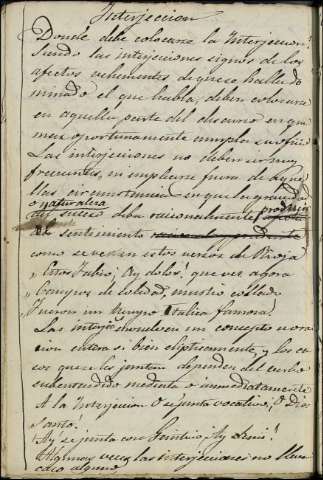 Interjeccion
Donde debe colocarse la Interjeccion?
Siendo las interjeciones signos de los
afectos vehementes de que se halla do
minado el que habla, deben colocarse
en aquella parte del discurso en que
mas oportunamente cumplan su oficio
Las interjeciones no deben ser muy
frecuentes, ni emplearse fuera de aque
llas circunstancias en que la gravedad
o naturaleza
del suceso deba racionalmente producir
el sentimiento
como se ve en estos versos de Rioja
„ Estos Fabio, Ay dolor! que ves agora
„ Campos de soledad, mustio collado
Fueron un tiempo Italica famosa!
Las interjeciones envuelven un concepto u ora
cion entera si bien elipticamente, y los ca
sos que se les juntan dependen del verbo
subentendido mediata o inmediatamente
A la Interjecion O se junta vocativo; O Dios
Santo!
Ay se junta con Genitivo; Ay
Algunas veces las interjeciones no llevan
caso alguno